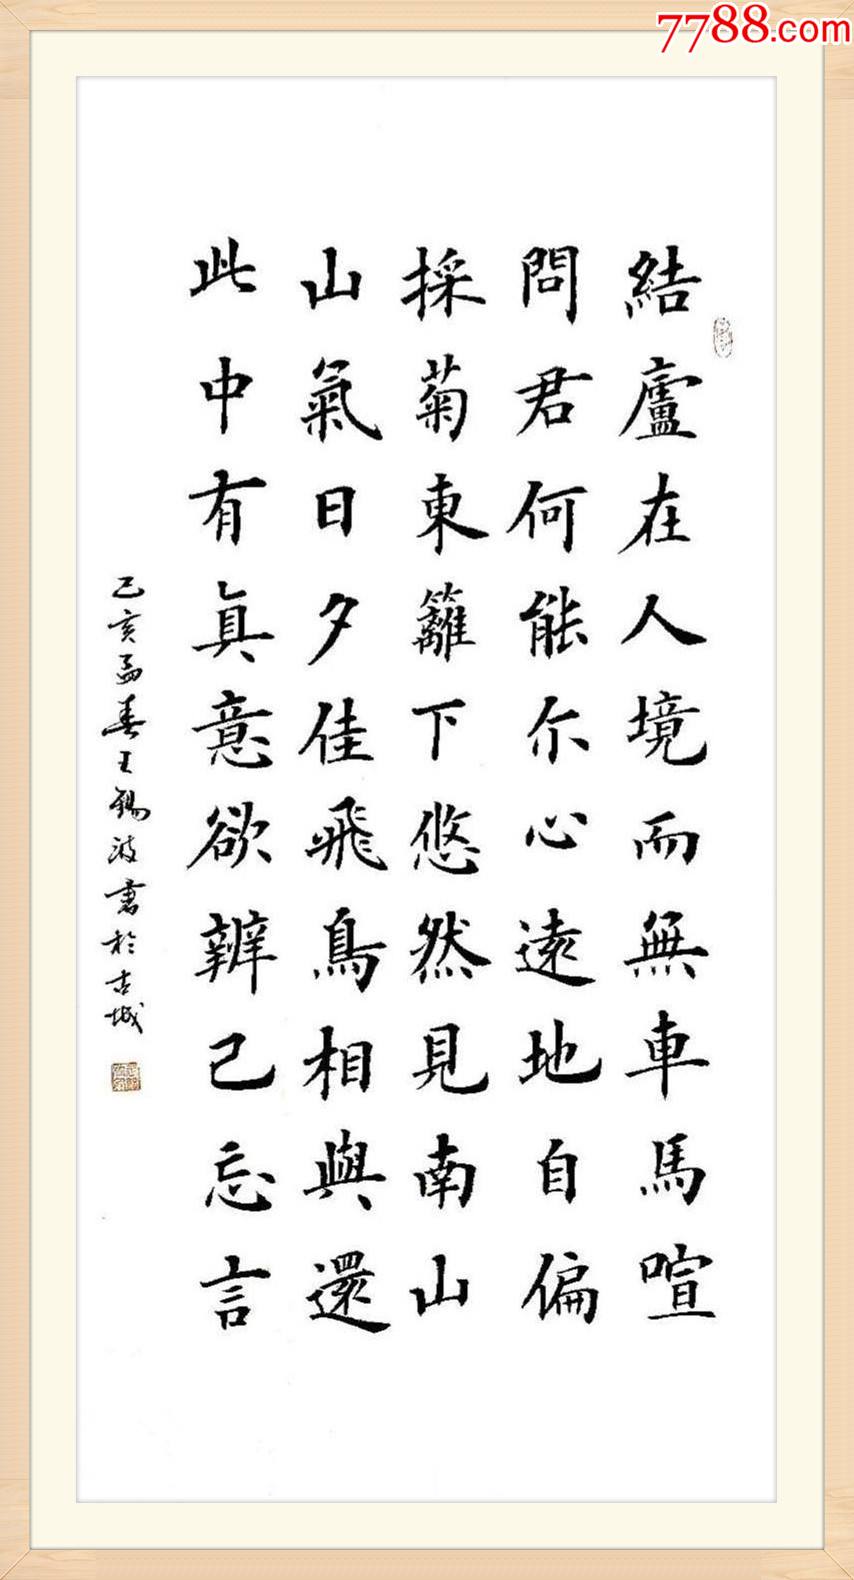 7788.com
結廬在人境而無車馬喧
問君何能尓心遠地自偏
採菊東籬下悠然見南山
山氣日夕佳飛鳥相與還
此中有真意欲辨己忘言
己亥孟春王錫波書於古城